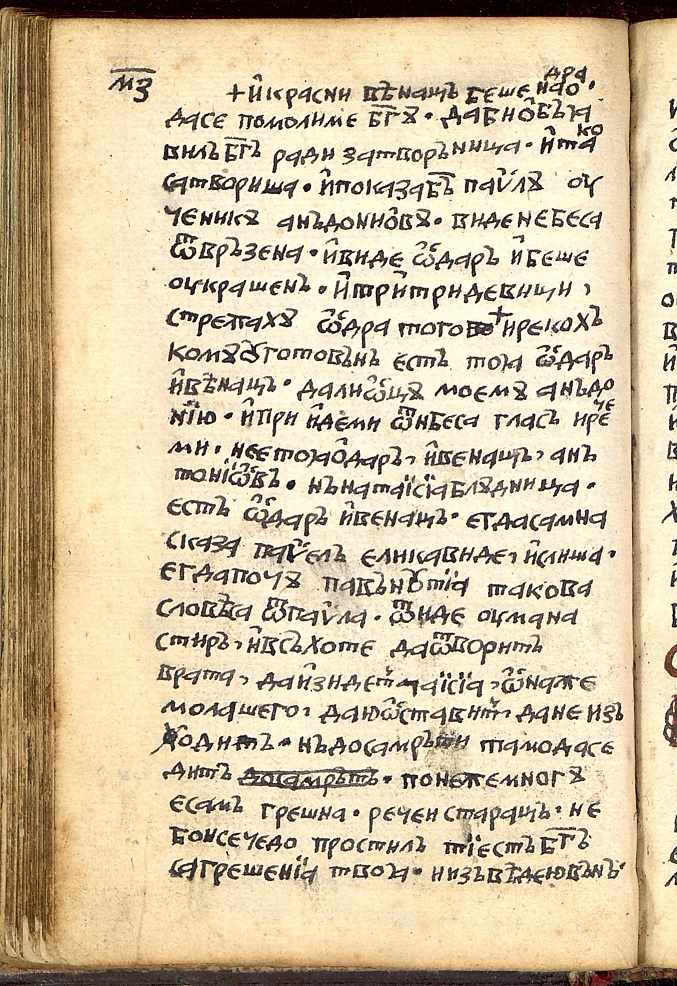 м҃з
+ и҆красни вѣнацъ беше на о҆дра.
дасе помолиме бг҃ꙋ · да бы нѡ҆въ꙼ꙗ
вилъ бг҃ъ ради затворъница · и҆ тако
сатвориша · и҆показа бъ паѵлꙋ оу
ченикꙋ анъдониѡ҆вꙋ · виде небеса
ѿвръзена · и҆виде ѡ҆даръ и҆беше
оукрашенъ · и҆три҆тридевици ,
стрежахꙋ ѡ҆дра того + ирекохъ
комꙋ оуготовънъ естъ тоꙗ ѡ҆даръ
и҆вѣнацъ · дали ѡ҆цꙋ моемꙋ анъдо
нїю · и҆при и҆деми ѿнбеса гласъ ирече
ми · нее тоꙗ о҆даръ , и҆венацъ , анъ
тонїѡ҆въ · нъ на таїсїа блꙋдница ·
естъ ѡ҆даръ и҆венацъ · егдасамна
сказа паѵелъ еликавиде , и҆слиша ·
егдапочꙋ павънꙋтїа такова
словѣса ѿпаѵла · ѿиде оумана
стиръ , и҆всъхоте даѿворитъ
врата , даи҆зидетъ таїсїа , ѡ҆наже
молашего , даю ѡ҆ставитъ , дане изъ
ходитъ · нъдосамръти тамодасе
дитъ досамрътъ · понежемногꙋ
есамъ грешна · рече и старацъ · не
боисечедо простилъ тїестъ бг҃ъ
сагрешенїа твоꙗ · низъвѣдеювънъ